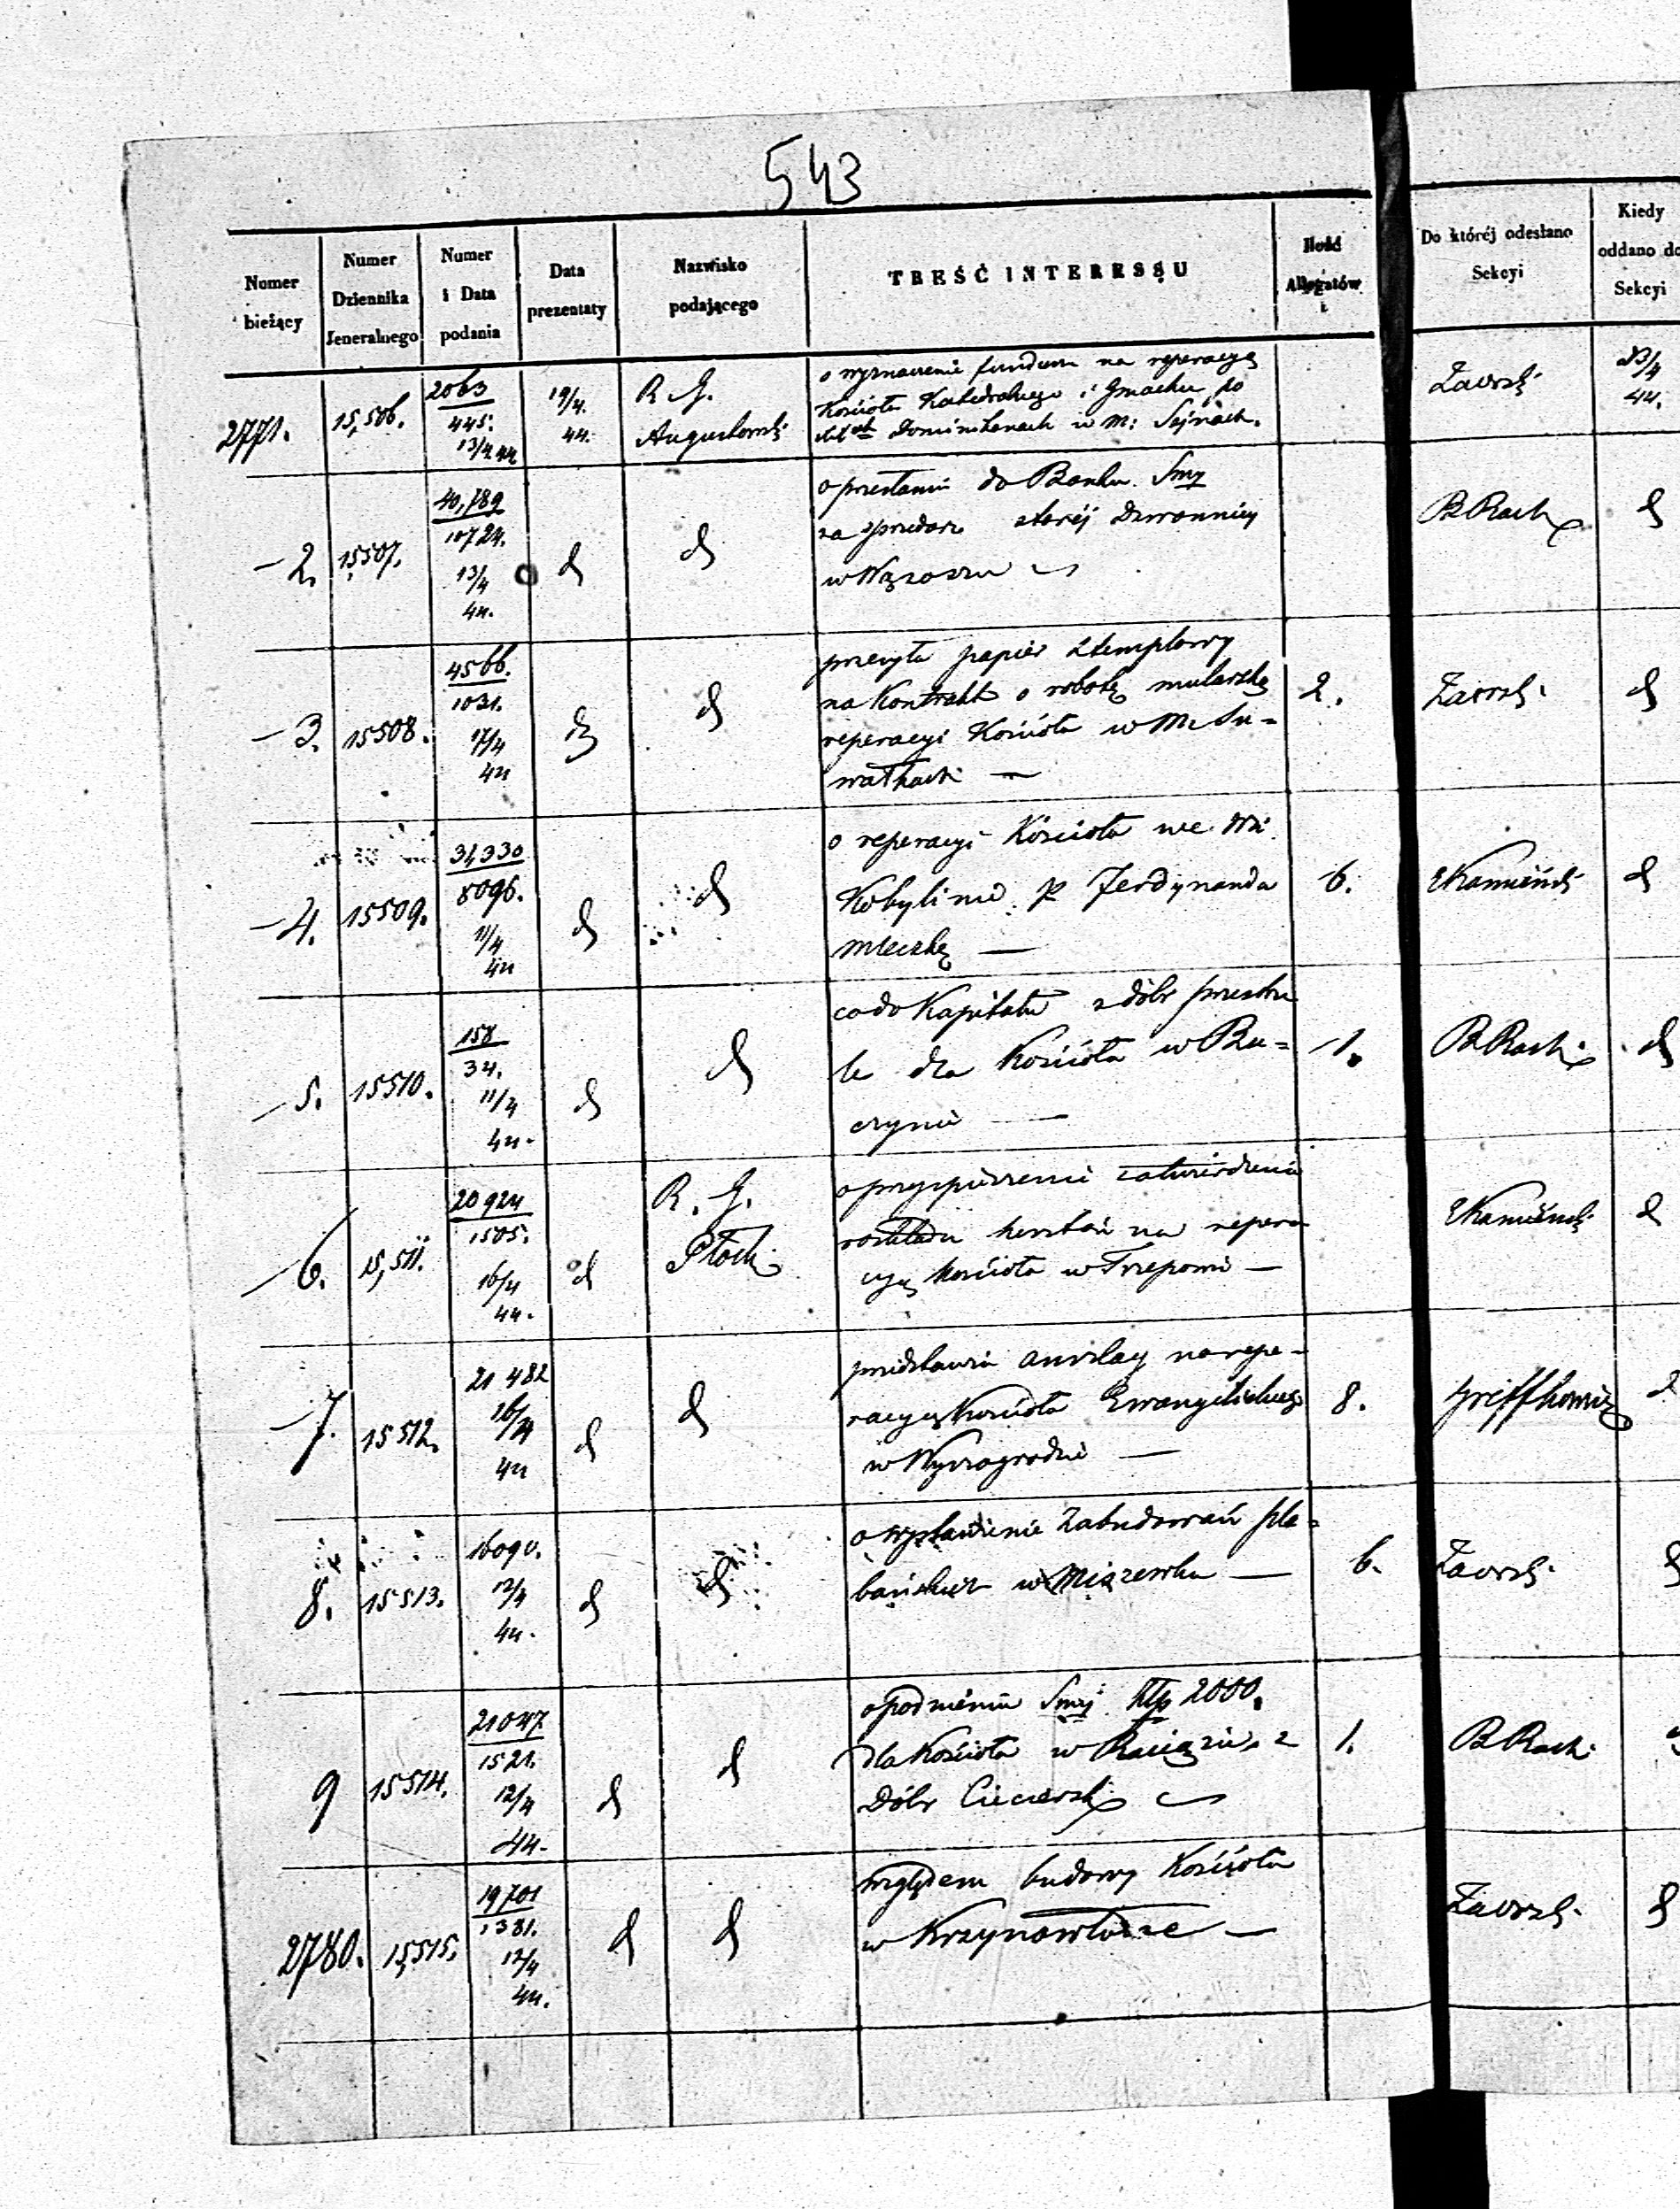 543
Numer bieżący
Numer Dziennika Jeneralnego
Numer i Data podania
Data prezentaty
Nazwisko podającego
TREŚĆ INTERESSU
Ilość Allegatów
Do któréj odesłano Sekcyi
Kiedy oddano do Sekcyi
2771. 15,506. 2063 445. 13/4 44 19/4. 44. R. G. Augustowski
o wyznaczenie funduszu na reperacyą
Kościoła Katedralnego i Gmachu po
Dominikanach w M: Sejnach.
23/4 44.
2. 15507. 40,789 10724. 13/4 44. d d
o przesłaniu do Banku Smy
za sprzedaż starej Dzwonnicy
w Wąsoszu
d
3. 15508. 4566. 1031. 17/4 44 d d
przesyła papier stemplowy
na Kontrakt o robotę mularską
reperacyi Kościoła w M. Su=
wałkach —
2. d
4. 15509. 31,330 8096. 11/4 44 d d
o reperacyi Kościoła we Wsi
Kobylinie p. Ferdynanda
Mleczkę —
6. Kamiński d
5. 15510. 158 34. 11/4 44. d d
co do Kapitału z dóbr
le dla Kościoła w Ba=
czynie —
1. d
6. 15,511. 20924 1505. 16/4 44. d R. G. Płocki
o przyspieszenie zatwierdzenia
rozkładu kosztów na repera
cyą Kościoła w Trzepowie —
Kamiński d
7. 15512. 21 482 16/4 44 d d
przedstawia anszlag na repe-
racyą Kościoła Ewangelickiego
w Wyszogrodzie —
8. d
8. 15513. 16090. 12/4 44. d d
o wystawienie Zabudowań ple=
bańskich w Miszewku —
6. d
9 15514. 21047 1521. 12/4 44. d d
o podniesieniu Smy Złp 2000.
dla Kościoła w Raciążu, z
Dóbr Ciecierski
1.
2780. 15,515. 19701 1381. 12/4 44. d d
względem budowy Kościoła
w Krzynowłodze —
d